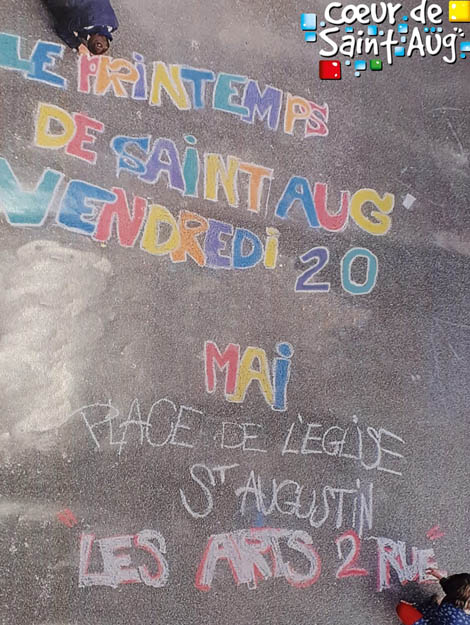 Cœur de
Saint Aug'
LE PRINTEMPS
DE SAINT AUG
VENDREDI 20
MAI
PLACE DE L'EGLISE
ST AUGUSTIN
"LES ARTS 2 RUE"